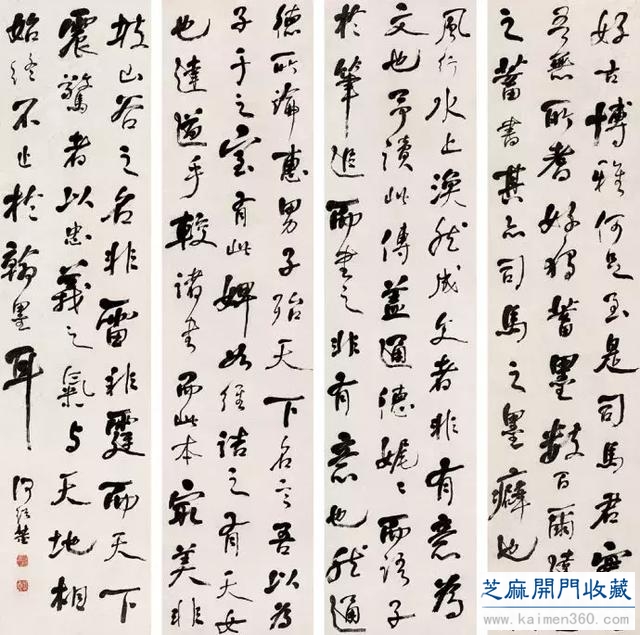 好古博雅何足至是司馬君實
吾無所耆好獨蓄墨數百爾請
之蓄書其亦司馬之墨癖也
風行水上渙然成文者非有意為
文也予讀此傳蓋通德娓〻而語子
於筆追而書之非有意也然通
德所論惠男子殆天下名言吾以為
子于之室有此婢如經詰之有天女
也達邀手較諸書而此本寂美非
坡山谷之名非雷非霆而天下
震驚者以忠義之氣與天地相
始終不止於翰墨耳
何紹基
芝麻開門收藏
www.kaimen360.com